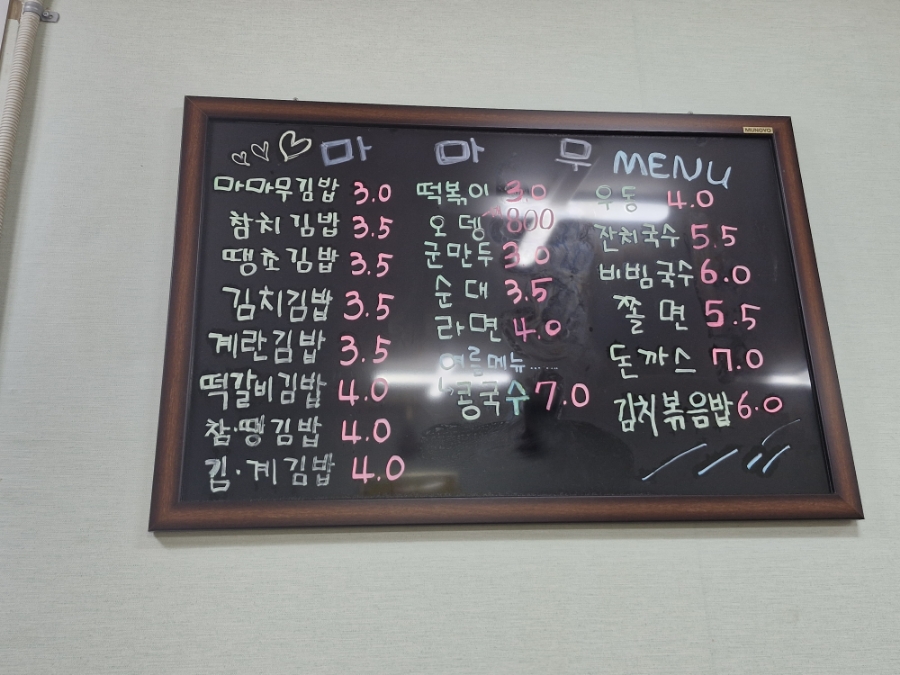 마 마 무 MENU
MUNGYO
마마무김밥 3.0
참치김밥 3.5
땡초김밥 3.5
김치김밥 3.5
계란김밥 3.5
떡갈비김밥 4.0
참·땡김밥 4.0
김·계김밥 4.0
떡볶이 3.0
오뎅 800
군만두 3.0
순대 3.5
라면 4.0
여름메뉴......
콩국수 7.0
우동 4.0
잔치국수 5.5
비빔국수 6.0
쫄면 5.5
돈까스 7.0
김치볶음밥 6.0